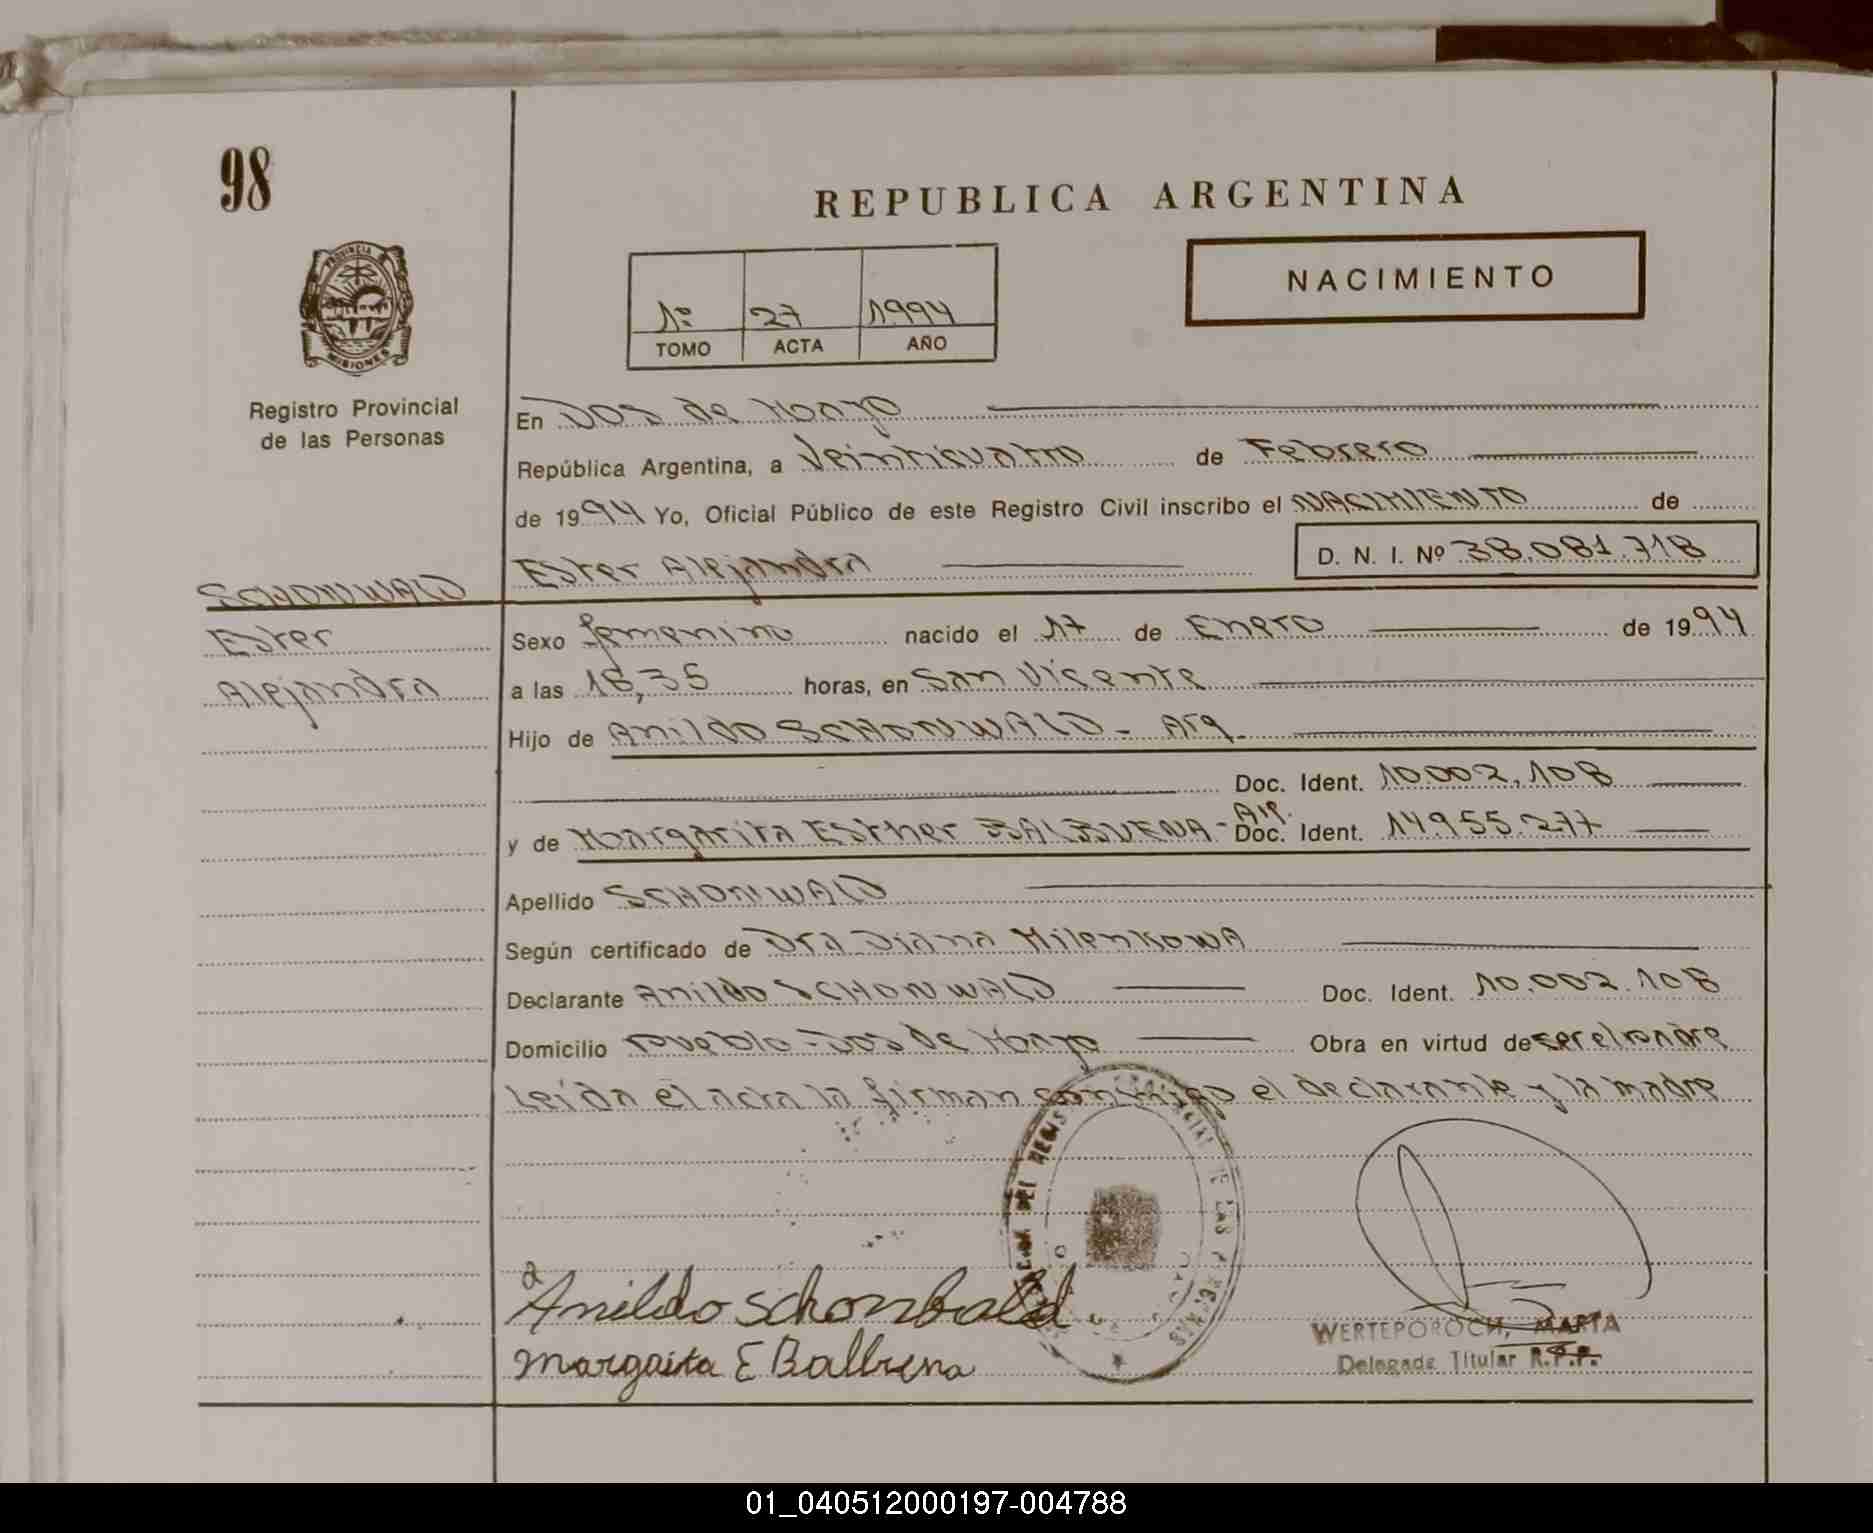 98
REPUBLICA ARGENTINA
NACIMIENTO
1º 27 1994
TOMO ACTA AÑO
PROVINCIA
MISIONES
Registro Provincial
de las Personas
En Dos de Mayo
República Argentina, a Veinticuatro de Febrero
de 1994 Yo, Oficial Público de este Registro Civil inscribo el NACIMIENTO de
Ester Alejandra D. N. I. Nº 38.081.718
SCHONWALD
Ester
Alejandra
Sexo femenino nacido el 17 de Enero de 1994
a las 16,35 horas, en San Vicente
Hijo de Anildo SCHONWALD - Arg.
Doc. Ident. 10.002.108
y de Margarita Esther BALBUENA - Arg. Doc. Ident. 14.955.277
Apellido SCHONWALD
Según certificado de Dra Diana Milenkowa
Declarante Anildo SCHONWALD Doc. Ident. 10.002.108
Domicilio Pueblo - Dos de Mayo Obra en virtud de ser el padre
Leída el acta la firman conmigo el declarante y la madre
Anildo Schonbald
Margarita E Balbuena
WERTEPOROCH, MARTA
Delegada Titular R.P.P.
01_040512000197-004788